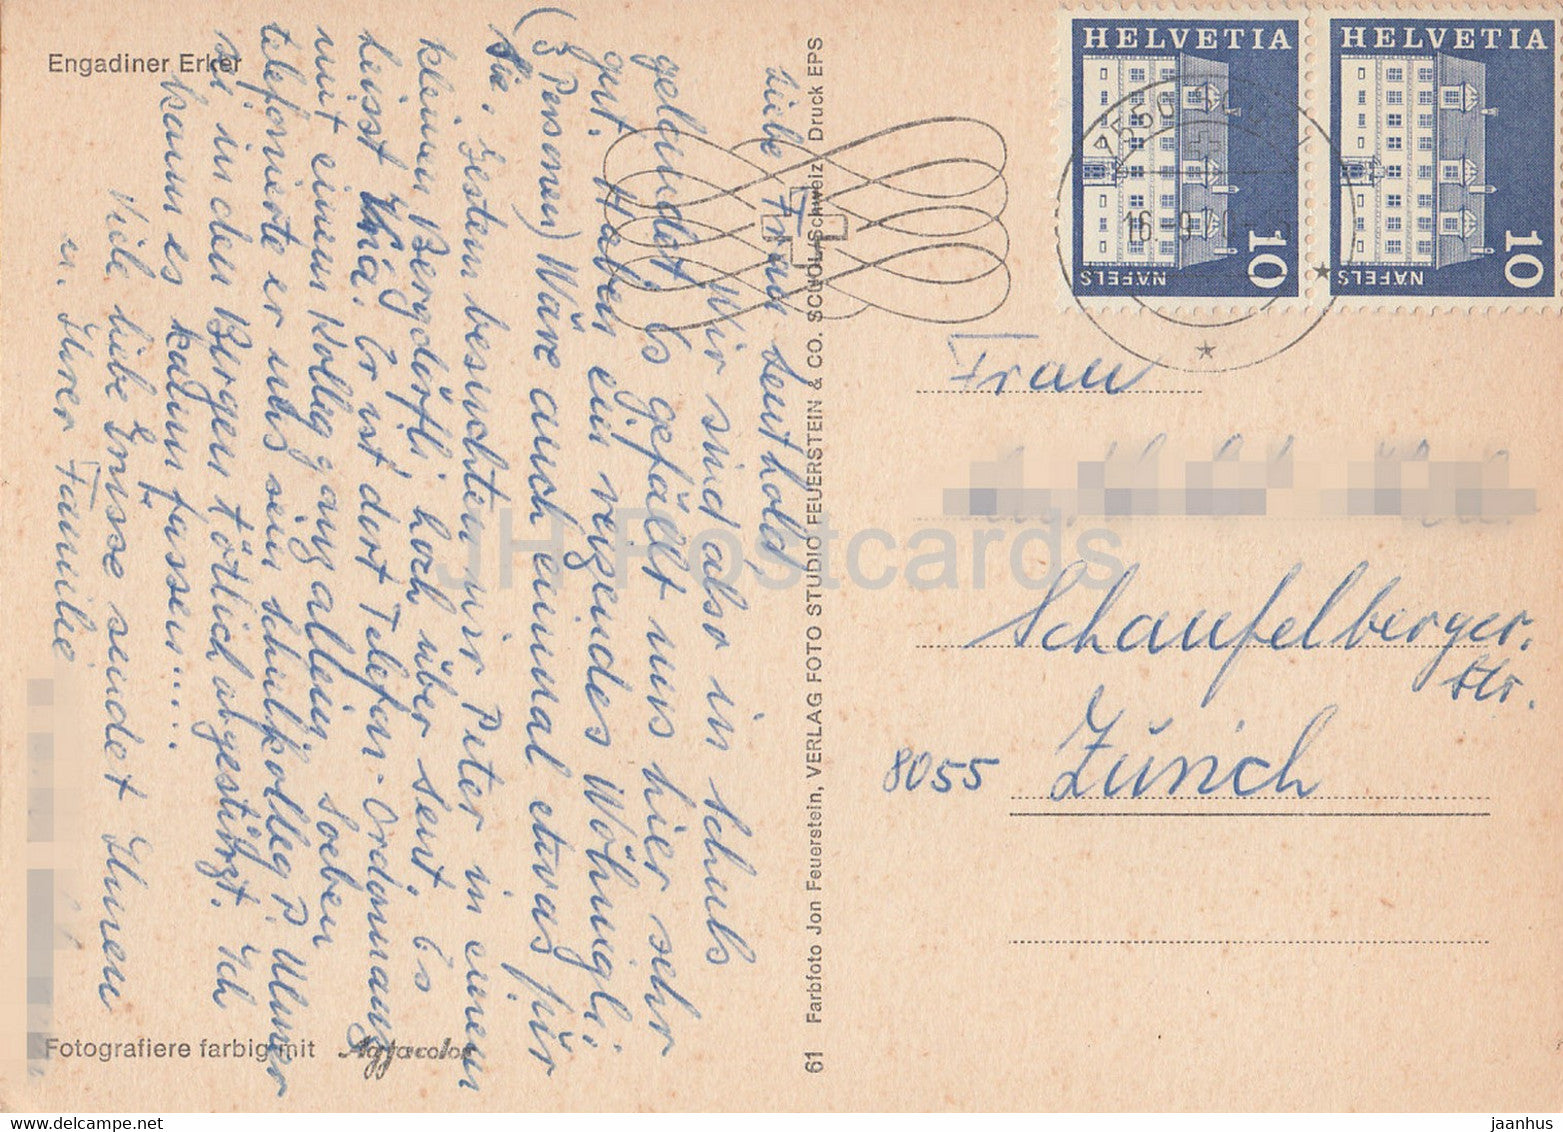 Engadiner Erker
Liebe Frau Leuthold
Wir sind also in Schuls
gelandet. Es gefällt uns hier sehr
gut. Haben ein reizendes Wohnigli
(3 Personen) Wäre auch einmal etwas für
Sie. Gestern besuchten wir Peter in einem
kleinen Bergdörfli, hoch über Sent. Es
heisst. Er ist dort Telefon-Ordonnanz
mit einem Kolleg ganz allein. Soeben
telefonierte er uns sein Schulkolleg P. Ulmer
sei in den Bergen tötlich abgestürzt. Ich
kann es kaum fassen....
Viele liebe Grüsse sendet Ihnen
u. Ihrer Familie
Fotografiere farbig mit Agfacolor
61 Farbfoto Jon Feuerstein, VERLAG FOTO STUDIO FEUERSTEIN & CO. SCUOL/Schweiz Druck EPS
HELVETIA
10
NÄFELS
HELVETIA
10
NÄFELS
7550
16.
Frau
Schaufelberger-
str.
8055 Zürich
JH Postcards
www.delcampe.net
jaanhus